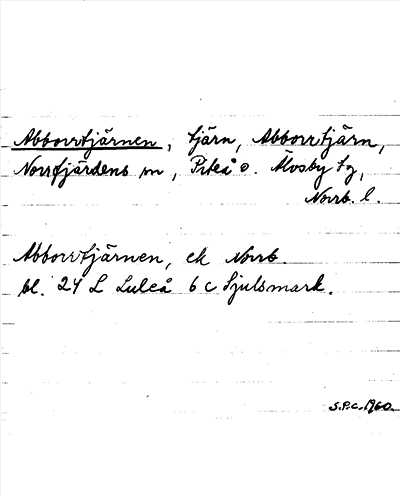 Abborrtjärnen, tjärn, Abborrtjärn,
Norrfjärdens sn, Piteå o. Älvsby tg,
Norrb. l.
Abborrtjärnen, ek Norrb.
bl. 24 L Luleå 6 c Sjulsmark.
S.P.C. 1960.